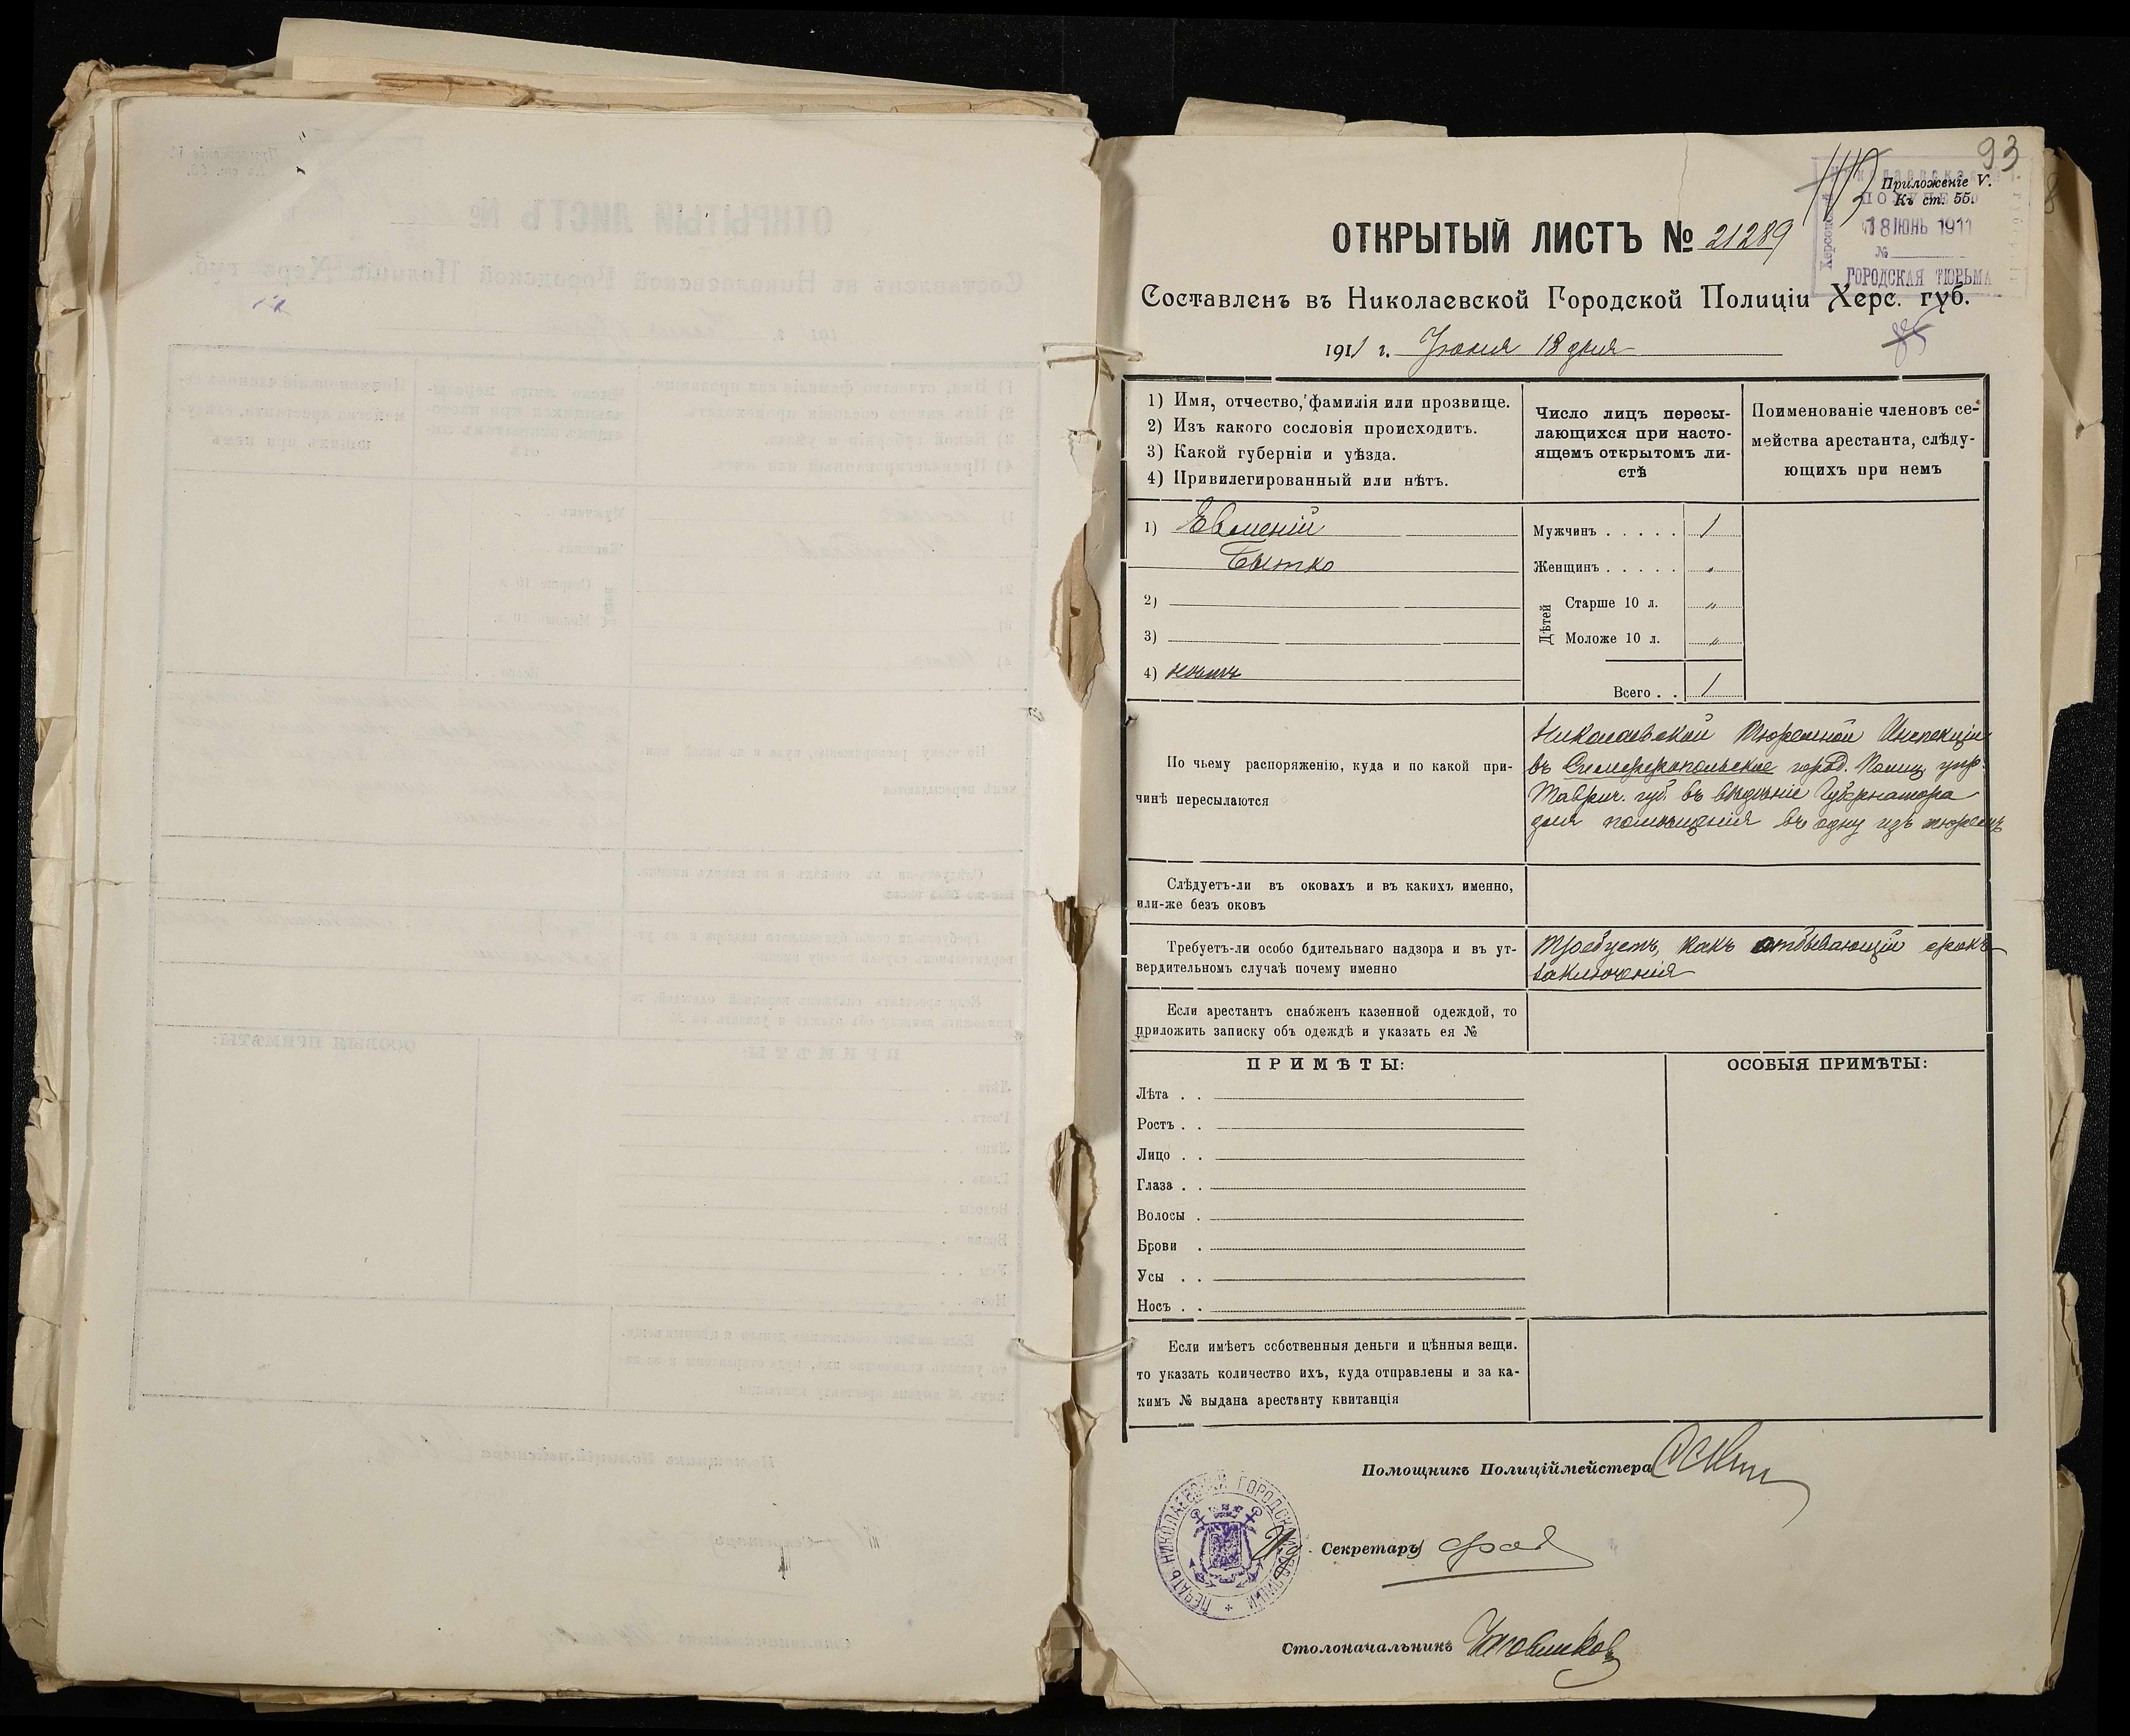 93
Приложеніе V.
Къ ст. 55.
18 ІЮНЬ 1911
№
ГОРОДСКАЯ ТЮРЬМА
ОТКРЫТЫЙ ЛИСТЪ № 21289
Составленъ въ Николаевской Городской Полиціи Херс. губ.
1911 г. Іюня 18 дня
1) Имя, отчество, фамилія или прозвище.
2) Изъ какого сословія происходитъ.
3) Какой губерніи и уѣзда.
4) Привилегированный или нѣтъ.
Число лицъ пересы-
лающихся при насто-
ящемъ открытомъ ли-
стѣ
Поименованіе членовъ се-
мейства арестанта, слѣду-
ющихъ при немъ
1) Евменій
Бытко
2)
3)
4) нѣтъ
Мужчинъ . . . . . 1
Женщинъ . . . . . "
Дѣтей
Старше 10 л. "
Моложе 10 л. "
Всего . . 1
По чьему распоряженію, куда и по какой при-
чинѣ пересылаются
Николаевской Тюремной Инспекціи
въ Симферопольское город. Полиц. упр.
Таврич. губ. въ вѣдѣніе Губернатора
для помѣщенія въ одну изъ тюремъ
Слѣдуетъ-ли въ оковахъ и въ какихъ именно,
или-же безъ оковъ
Требуетъ-ли особо бдительнаго надзора и въ ут-
вердительномъ случаѣ почему именно
Требуетъ, какъ отбывающій срокъ
заключенія
Если арестантъ снабженъ казенной одеждой, то
приложить записку объ одеждѣ и указать ея №
ПРИМѢТЫ:
ОСОБЫЯ ПРИМѢТЫ:
Лѣта . .
Ростъ . .
Лицо . .
Глаза . .
Волосы .
Брови .
Усы . .
Носъ . .
Если имѣетъ собственныя деньги и цѣнныя вещи.
то указать количество ихъ, куда отправлены и за ка-
кимъ № выдана арестанту квитанція
Помощникъ Полиціймейстера
Секретарь
Столоначальникъ
ПЕЧАТЬ НИКОЛАЕВСКОЙ ГОРОДСКОЙ ПОЛИЦІИ